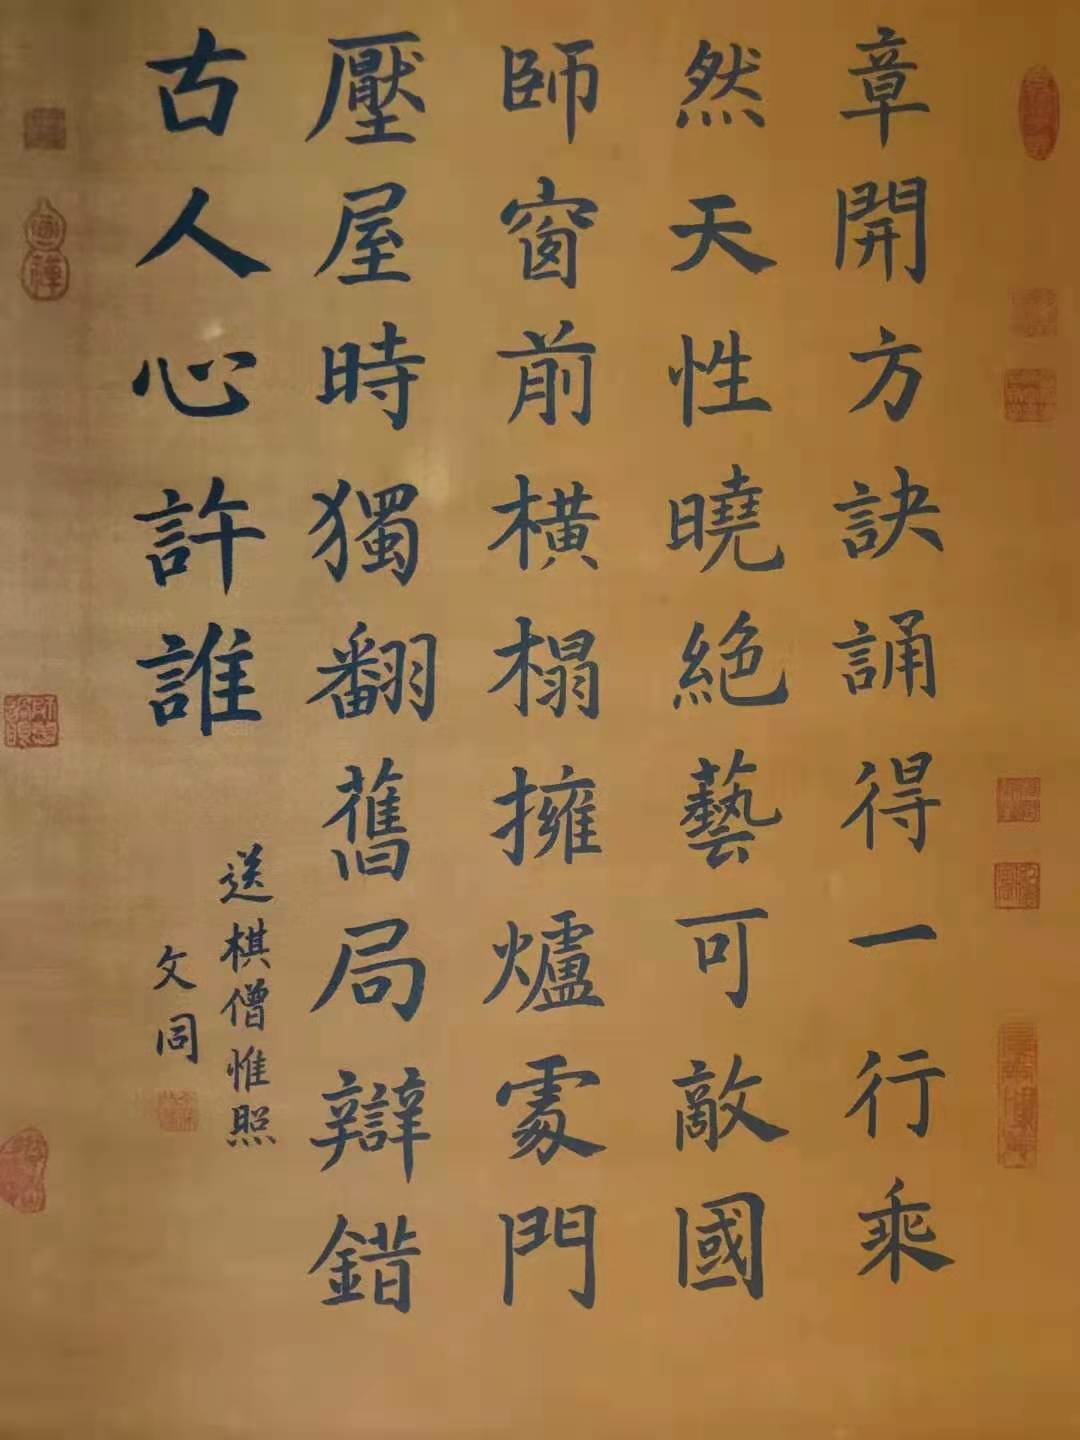 章開方訣誦得一行乘
然天性曉絕藝可敵國
師窗前橫榻擁爐處門
壓屋時獨翻舊局辯錯
古人心許誰
送棋僧惟照
文同